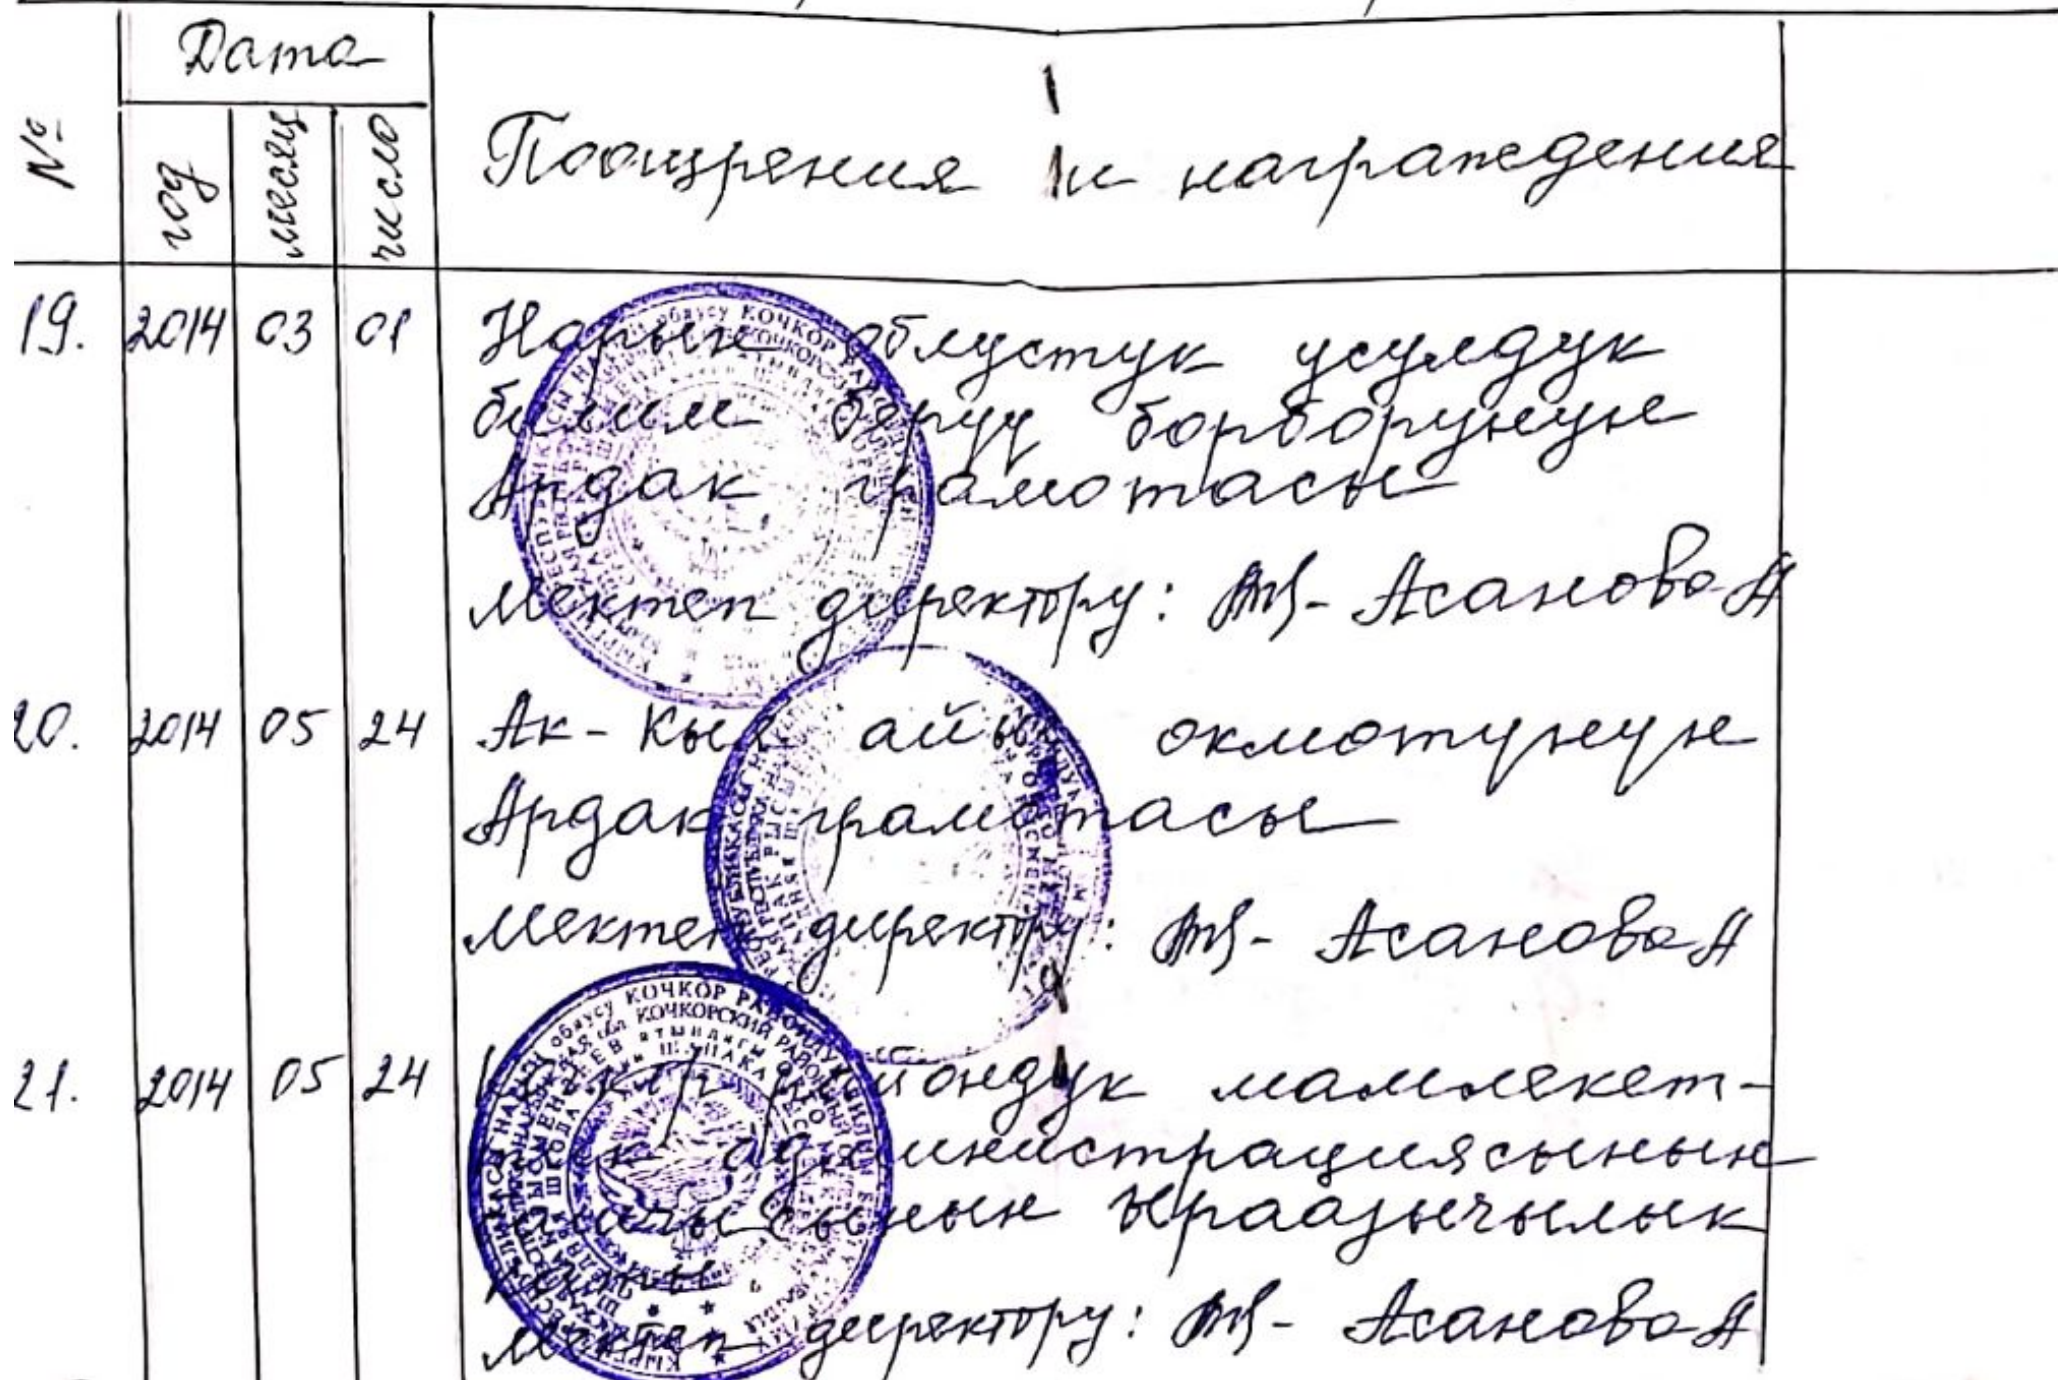 № Дата Поощрения и награждения
год месяц число
19. 2014 03 01 Нарын облустук усулдук
билим берүү борборунун
Ардак грамотасы
Мектеп директору: Асанова А
20. 2014 05 24 Ак-Кыя айыл окмотунун
Ардак грамотасы
Мектеп директору: Асанова А
21. 2014 05 24 Кочкор райондук мамлекет-
тик администрациясынын
башчысынын Ыраазычылык
каты
Мектеп директору: Асанова А
облусу КОЧКОР РАЙОНДУК БИЛИМ
КОЧКОРСКИЙ РАЙОННЫЙ